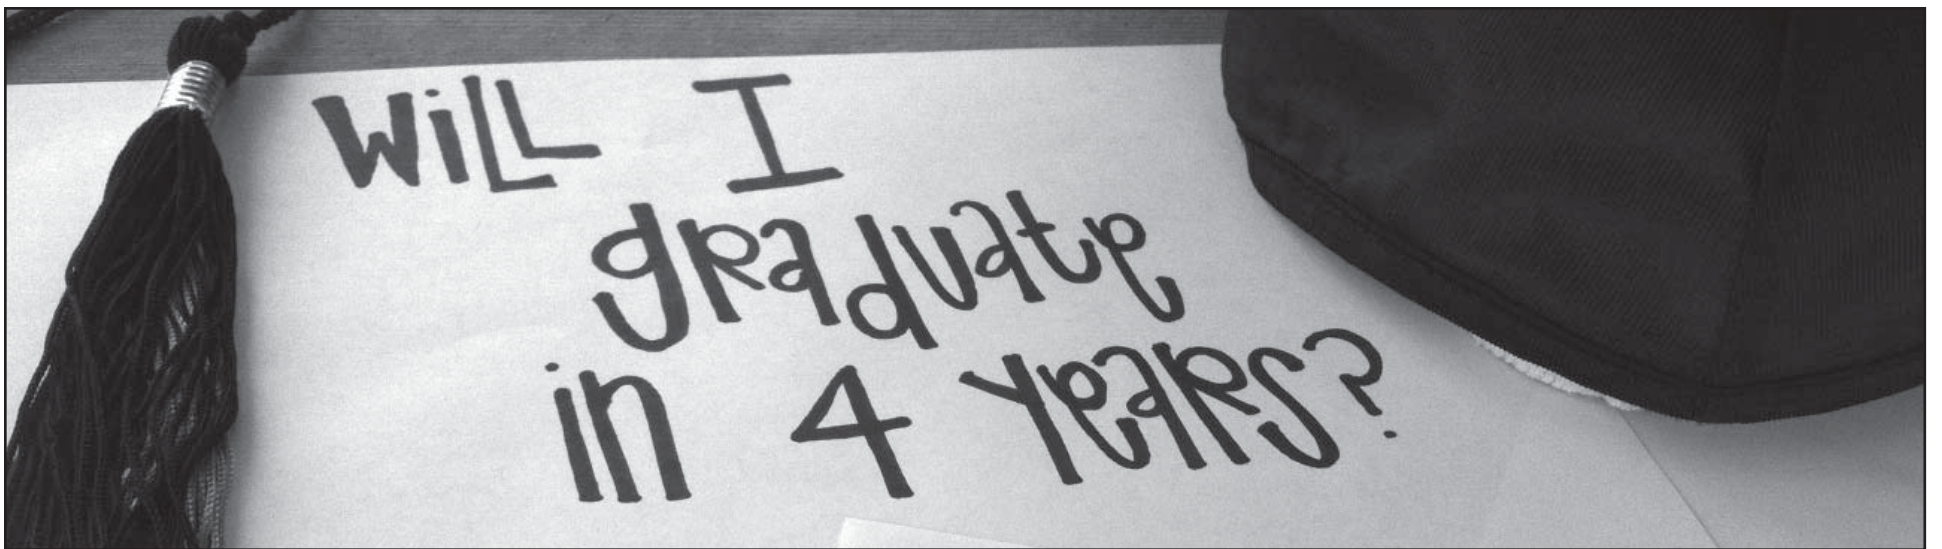 WiLL I
graduate
in 4 years?